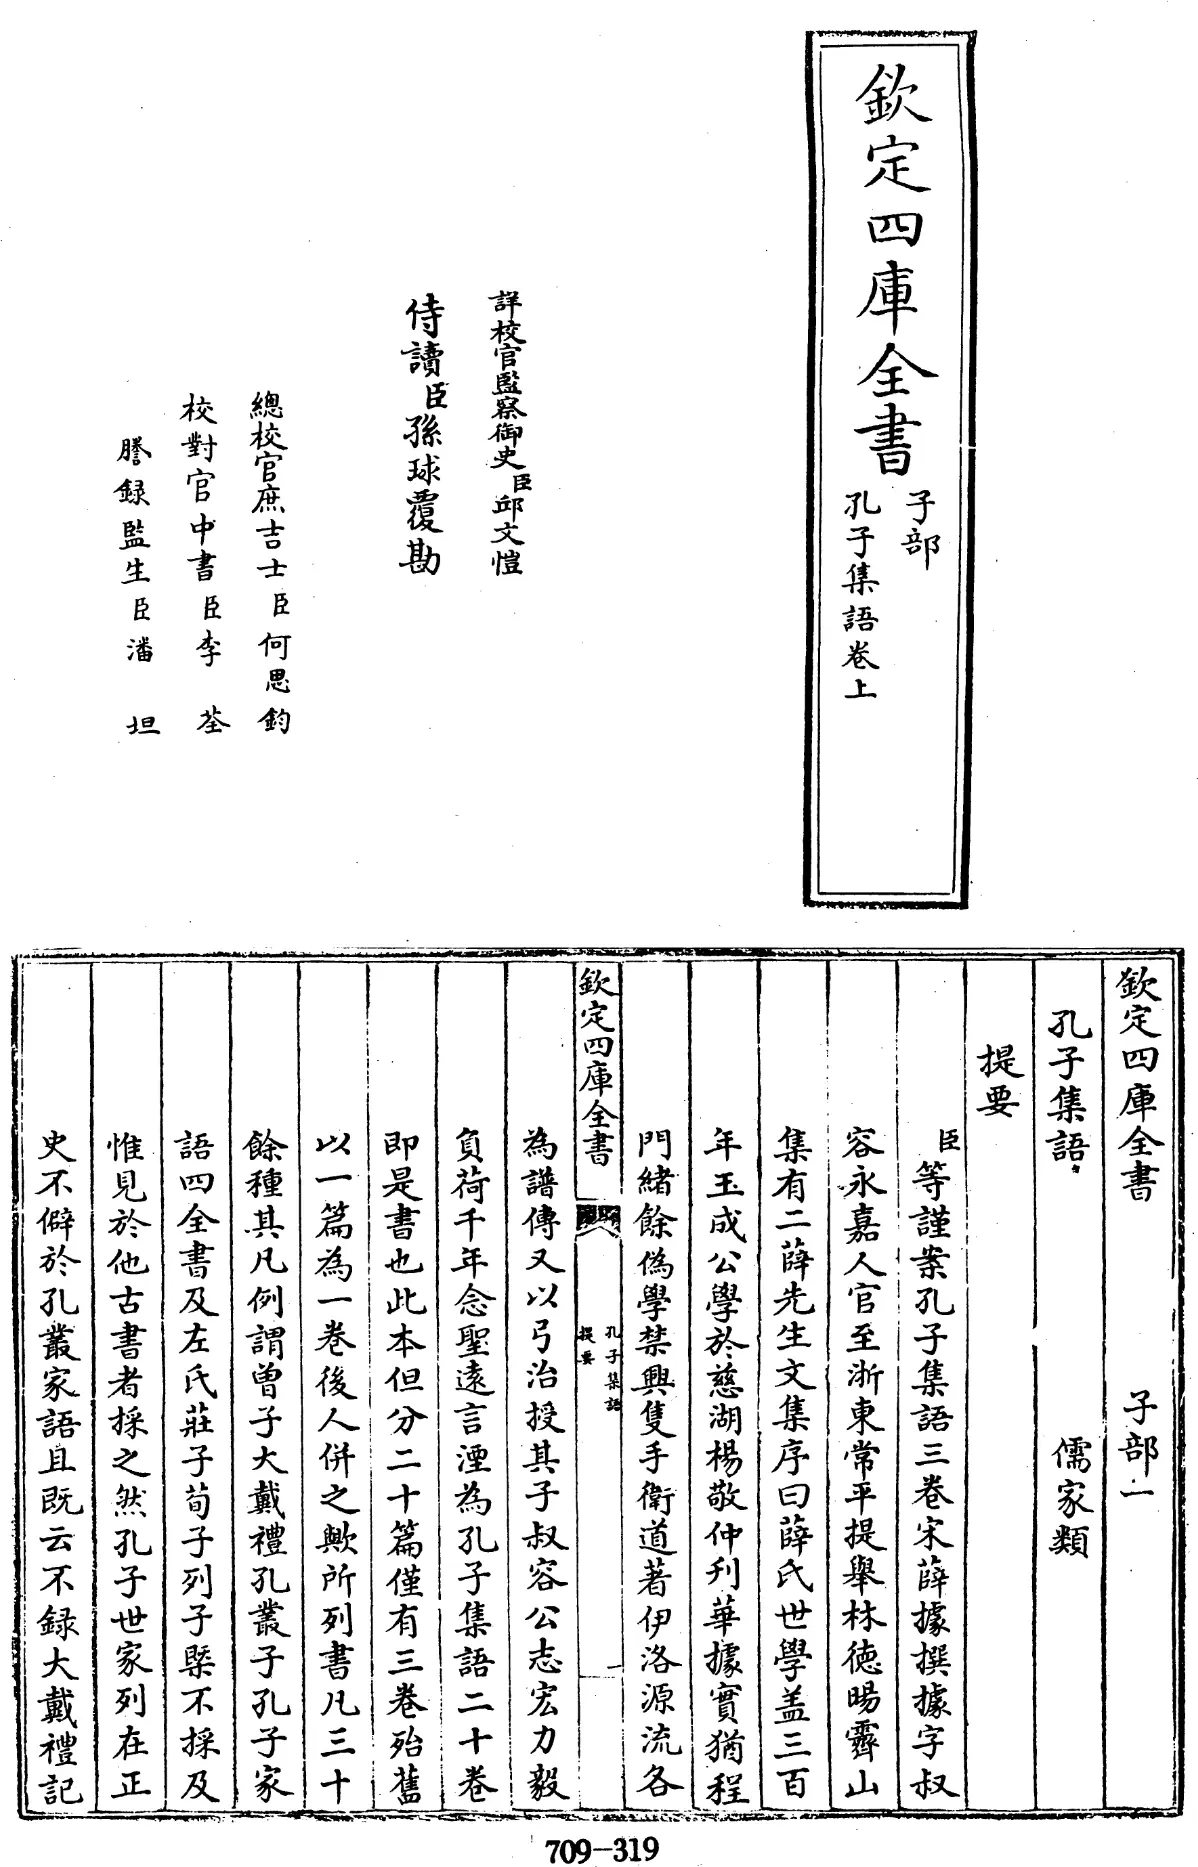 欽定四庫全書
子部
孔子集語卷上
詳校官監察御史臣邱文愷
侍讀臣孫球覆勘
總校官庶吉士臣何思鈞
校對官中書臣李荃
謄録監生臣潘坦
欽定四庫全書 子部一
孔子集語 儒家類
提要
臣等謹案孔子集語三卷宋薛據撰據字叔
容永嘉人官至浙東常平提舉林徳暘霽山
集有二薛先生文集序曰薛氏世學盖三百
年玉成公學於慈湖楊敬仲刋華據實猶程
門緒餘偽學禁興隻手衛道著伊洛源流各
欽定四庫全書
孔子集語
提要
一
為譜傳又以弓治授其子叔容公志宏力毅
負荷千年念聖遠言湮為孔子集語二十卷
即是書也此本但分二十篇僅有三卷殆舊
以一篇為一卷後人併之歟所列書凡三十
餘種其凡例謂曽子大戴禮孔叢子孔子家
語四全書及左氏莊子荀子列子槩不採及
惟見於他古書者採之然孔子世家列在正
史不僻於孔叢家語且既云不録大戴禮記
709-319